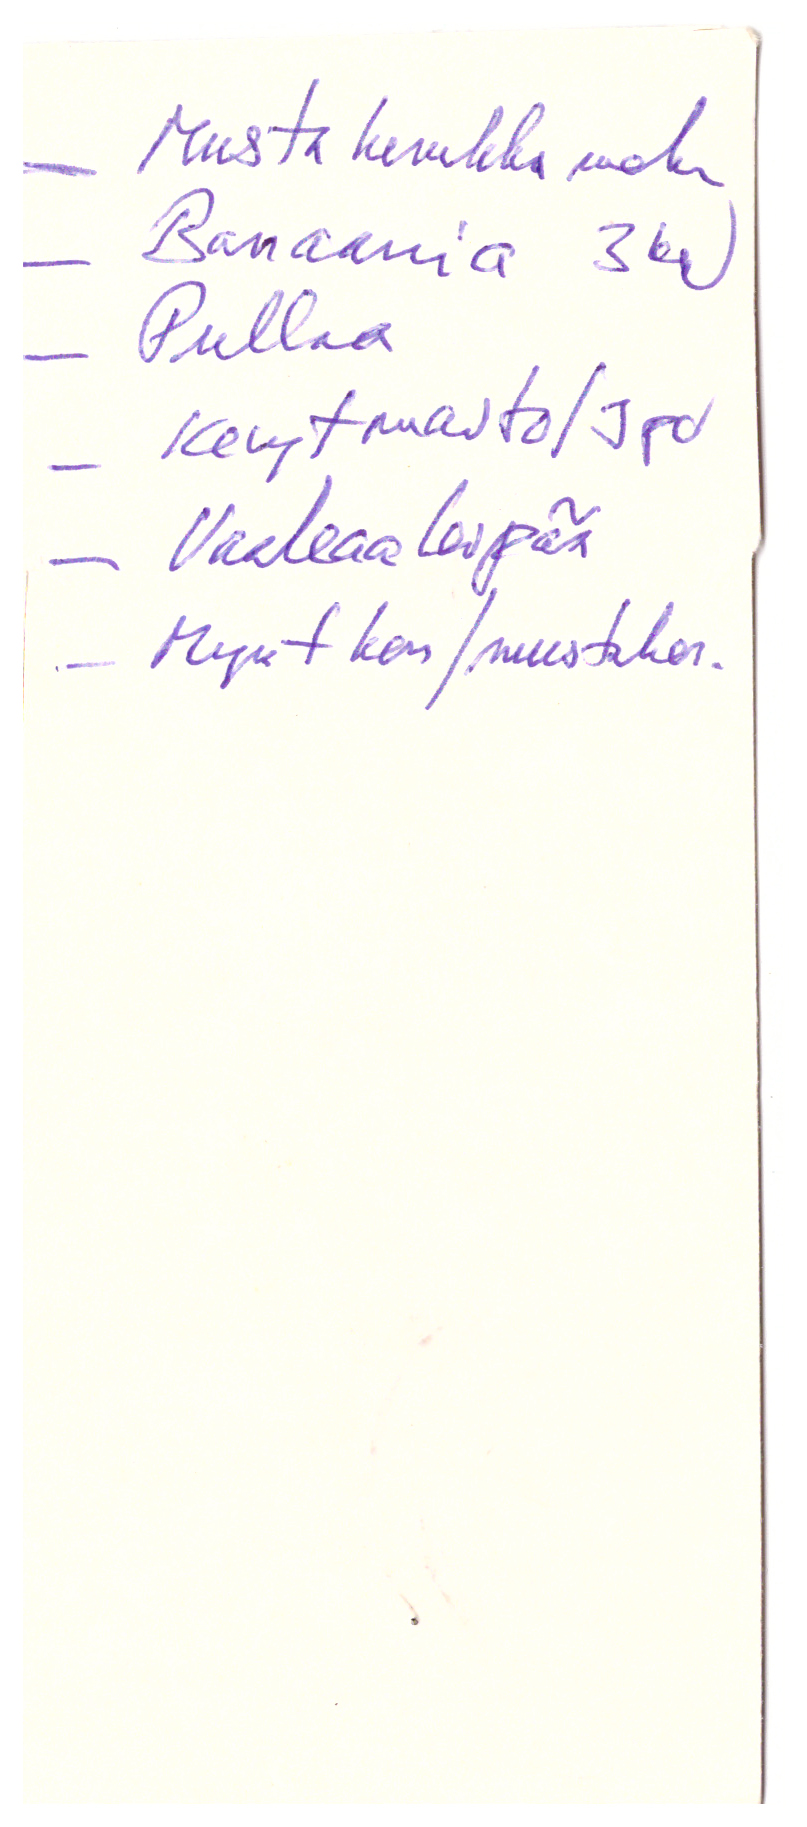 — Musta herukka mehu
— Banaania 3 kg
— Pullaa
— Kevyt maito / 3 prk
— Vaaleaa leipää
— Mynt ken / mustaher.